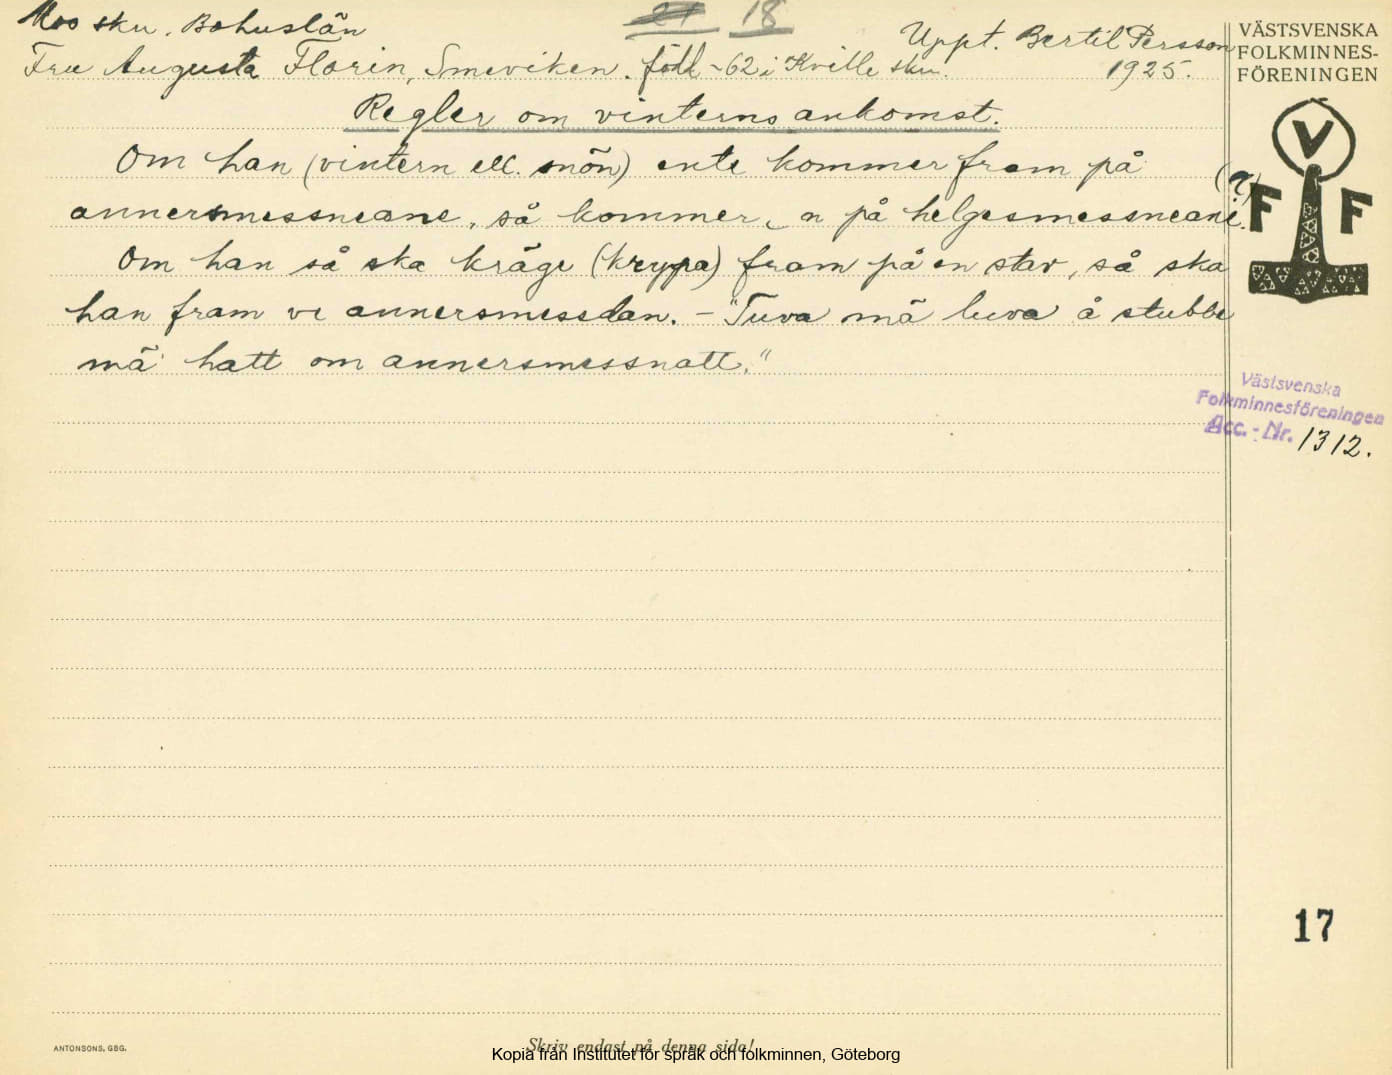 Mos sku. Bohuslän
18
Uppt. Bertil Persson
Fru Augusta Florin, Smeviken. född -62 i Kville sku.
1925.
Regler om vinterns ankomst.
Om han (vintern ell. snön) ente kommer fram på
annersmessneane, så kommer n på helgesmessneane. (?)
Om han så ska kräge (krypa) fram på en stav, så ska
han fram ve annersmessdan. - "Tuva mä luva å stubbe
mä hatt om annersmessnatt."
VÄSTSVENSKA
FOLKMINNES-
FÖRENINGEN
V
F F
Västsvenska
Folkminnesföreningen
Acc. - Nr. 1312.
17
ANTONSONS, GBG.
Skriv endast på denna sida!
Kopia från Institutet för språk och folkminnen, Göteborg